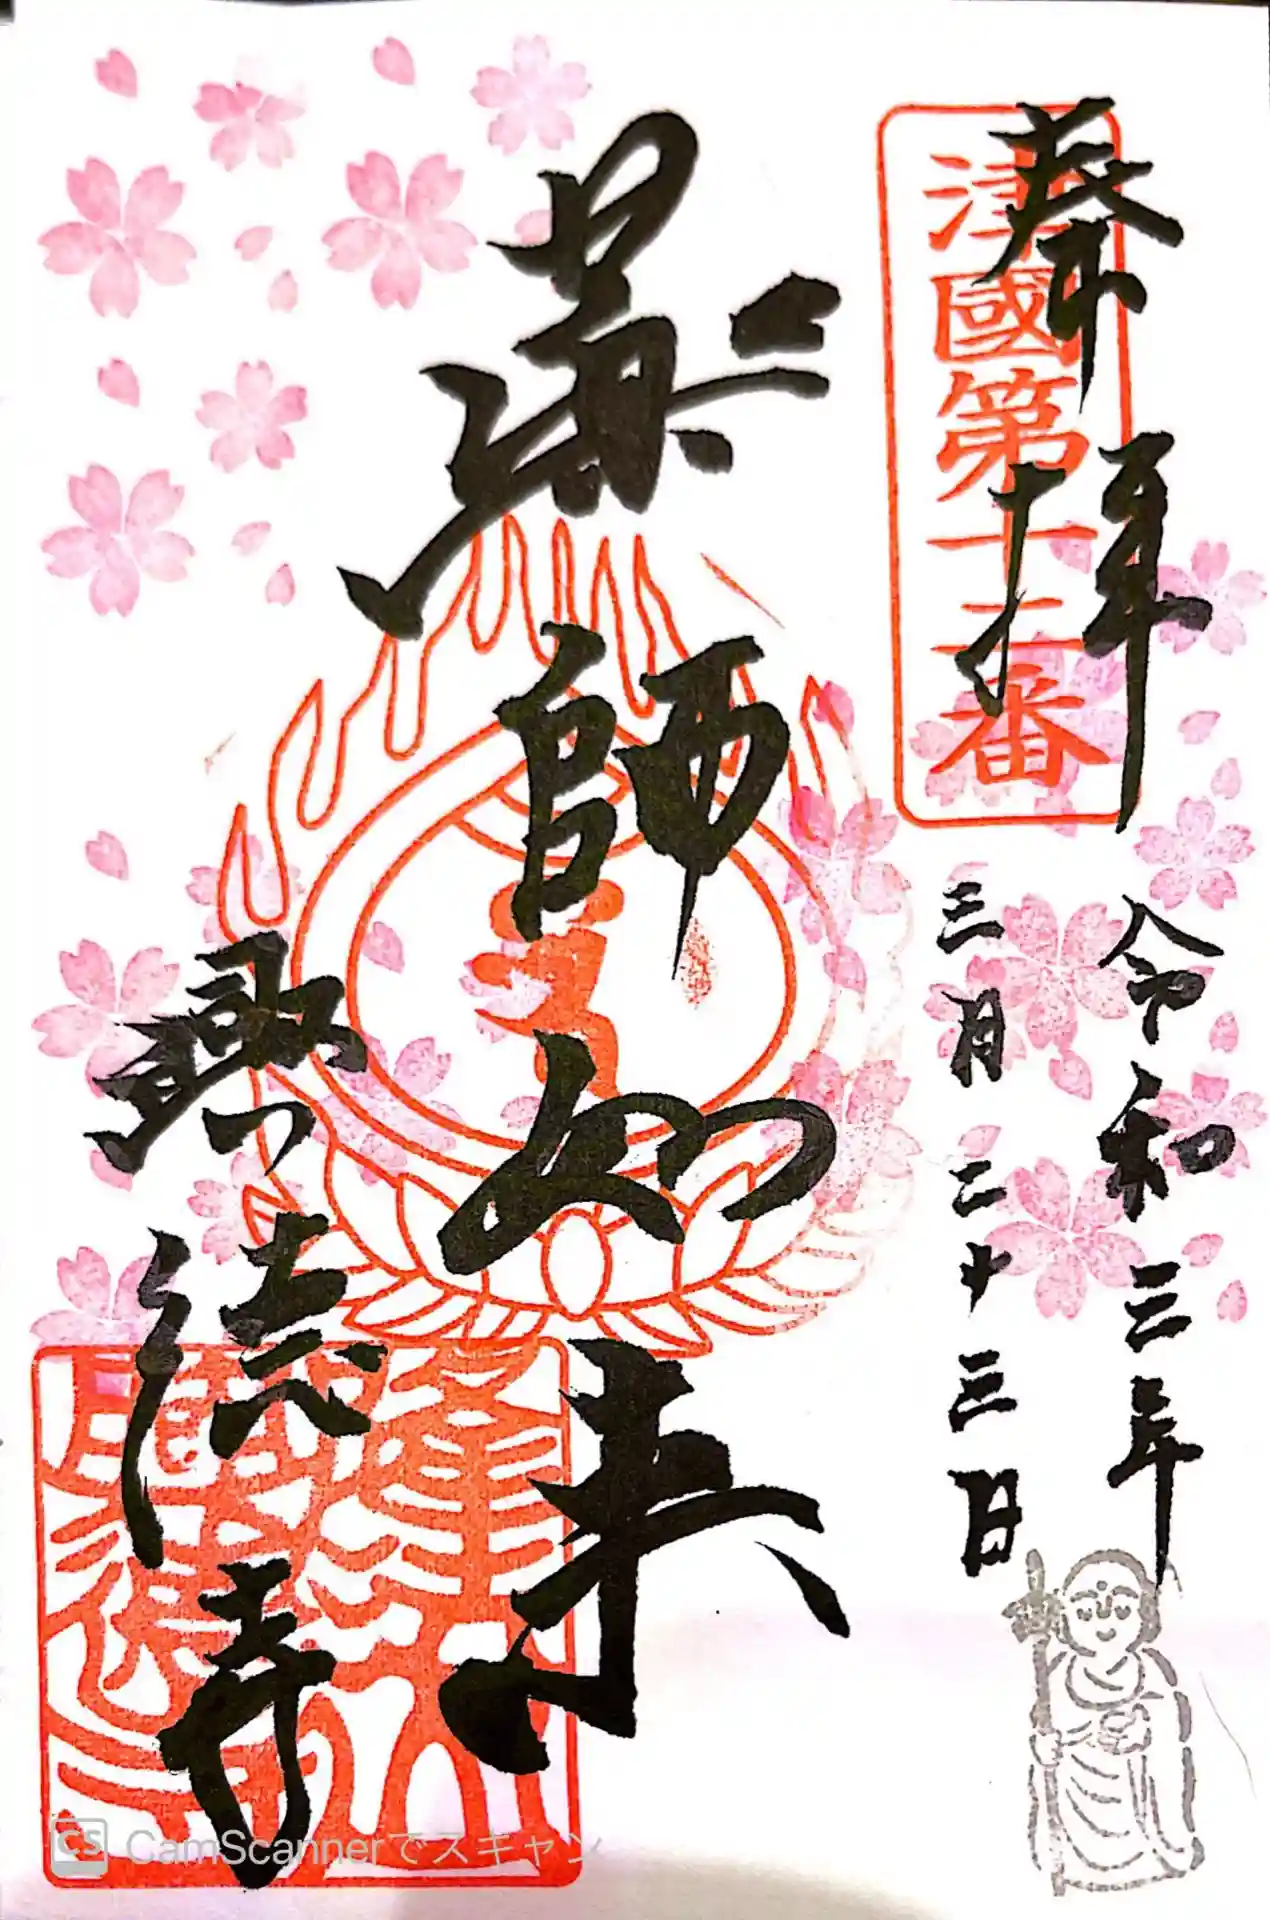 奉拝
津國第十二番
令和三年
三月二十三日
薬師如来
興徳寺
CamScannerでスキャン